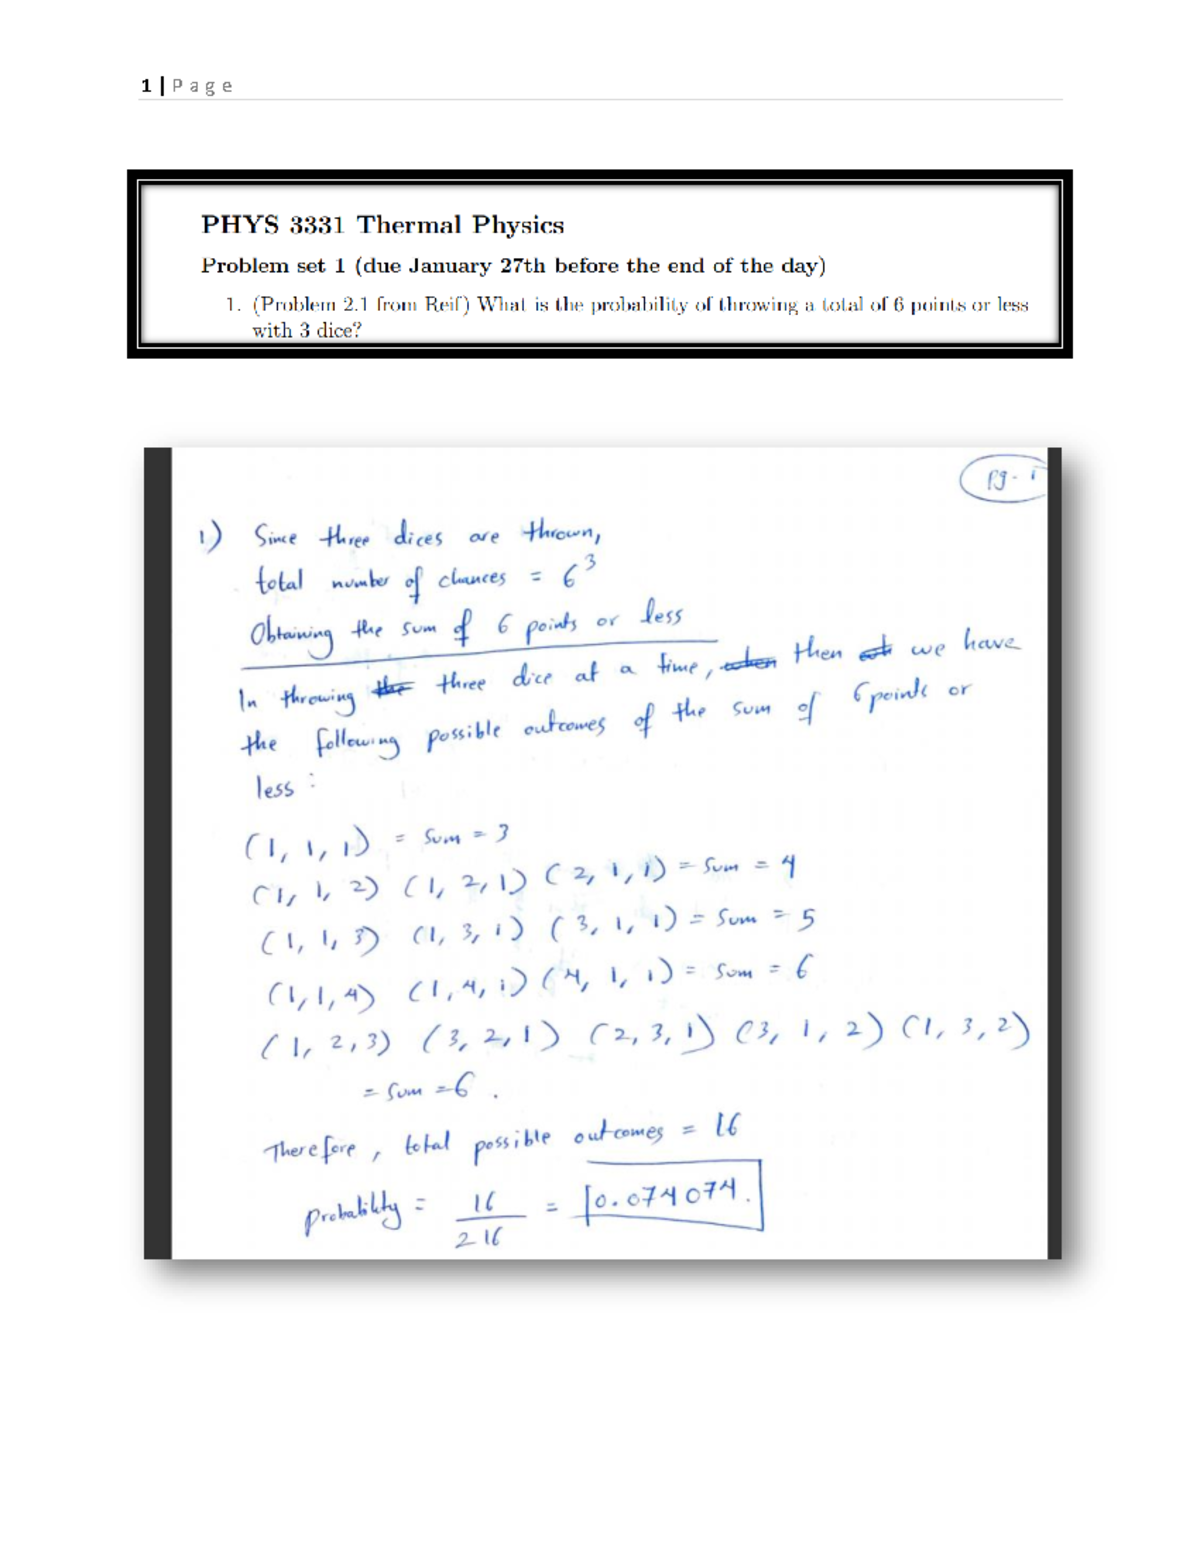 1 | P a g e
PHYS 3331 Thermal Physics
Problem set 1 (due January 27th before the end of the day)
1. (Problem 2.1 from Reif) What is the probability of throwing a total of 6 points or less
with 3 dice?
pg - 1
1) Since three dices are thrown,
total number of chances = 6³
Obtaining the sum of 6 points or less
In throwing the three dice at a time, when then we have
the following possible outcomes of the sum of 6 points or
less :
(1, 1, 1) = Sum = 3
(1, 1, 2) (1, 2, 1) (2, 1, 1) = Sum = 4
(1, 1, 3) (1, 3, 1) (3, 1, 1) = Sum = 5
(1, 1, 4) (1, 4, 1) (4, 1, 1) = Sum = 6
(1, 2, 3) (3, 2, 1) (2, 3, 1) (3, 1, 2) (1, 3, 2)
= Sum = 6 .
Therefore, total possible outcomes = 16
probability = 16/216 = 0.074074.